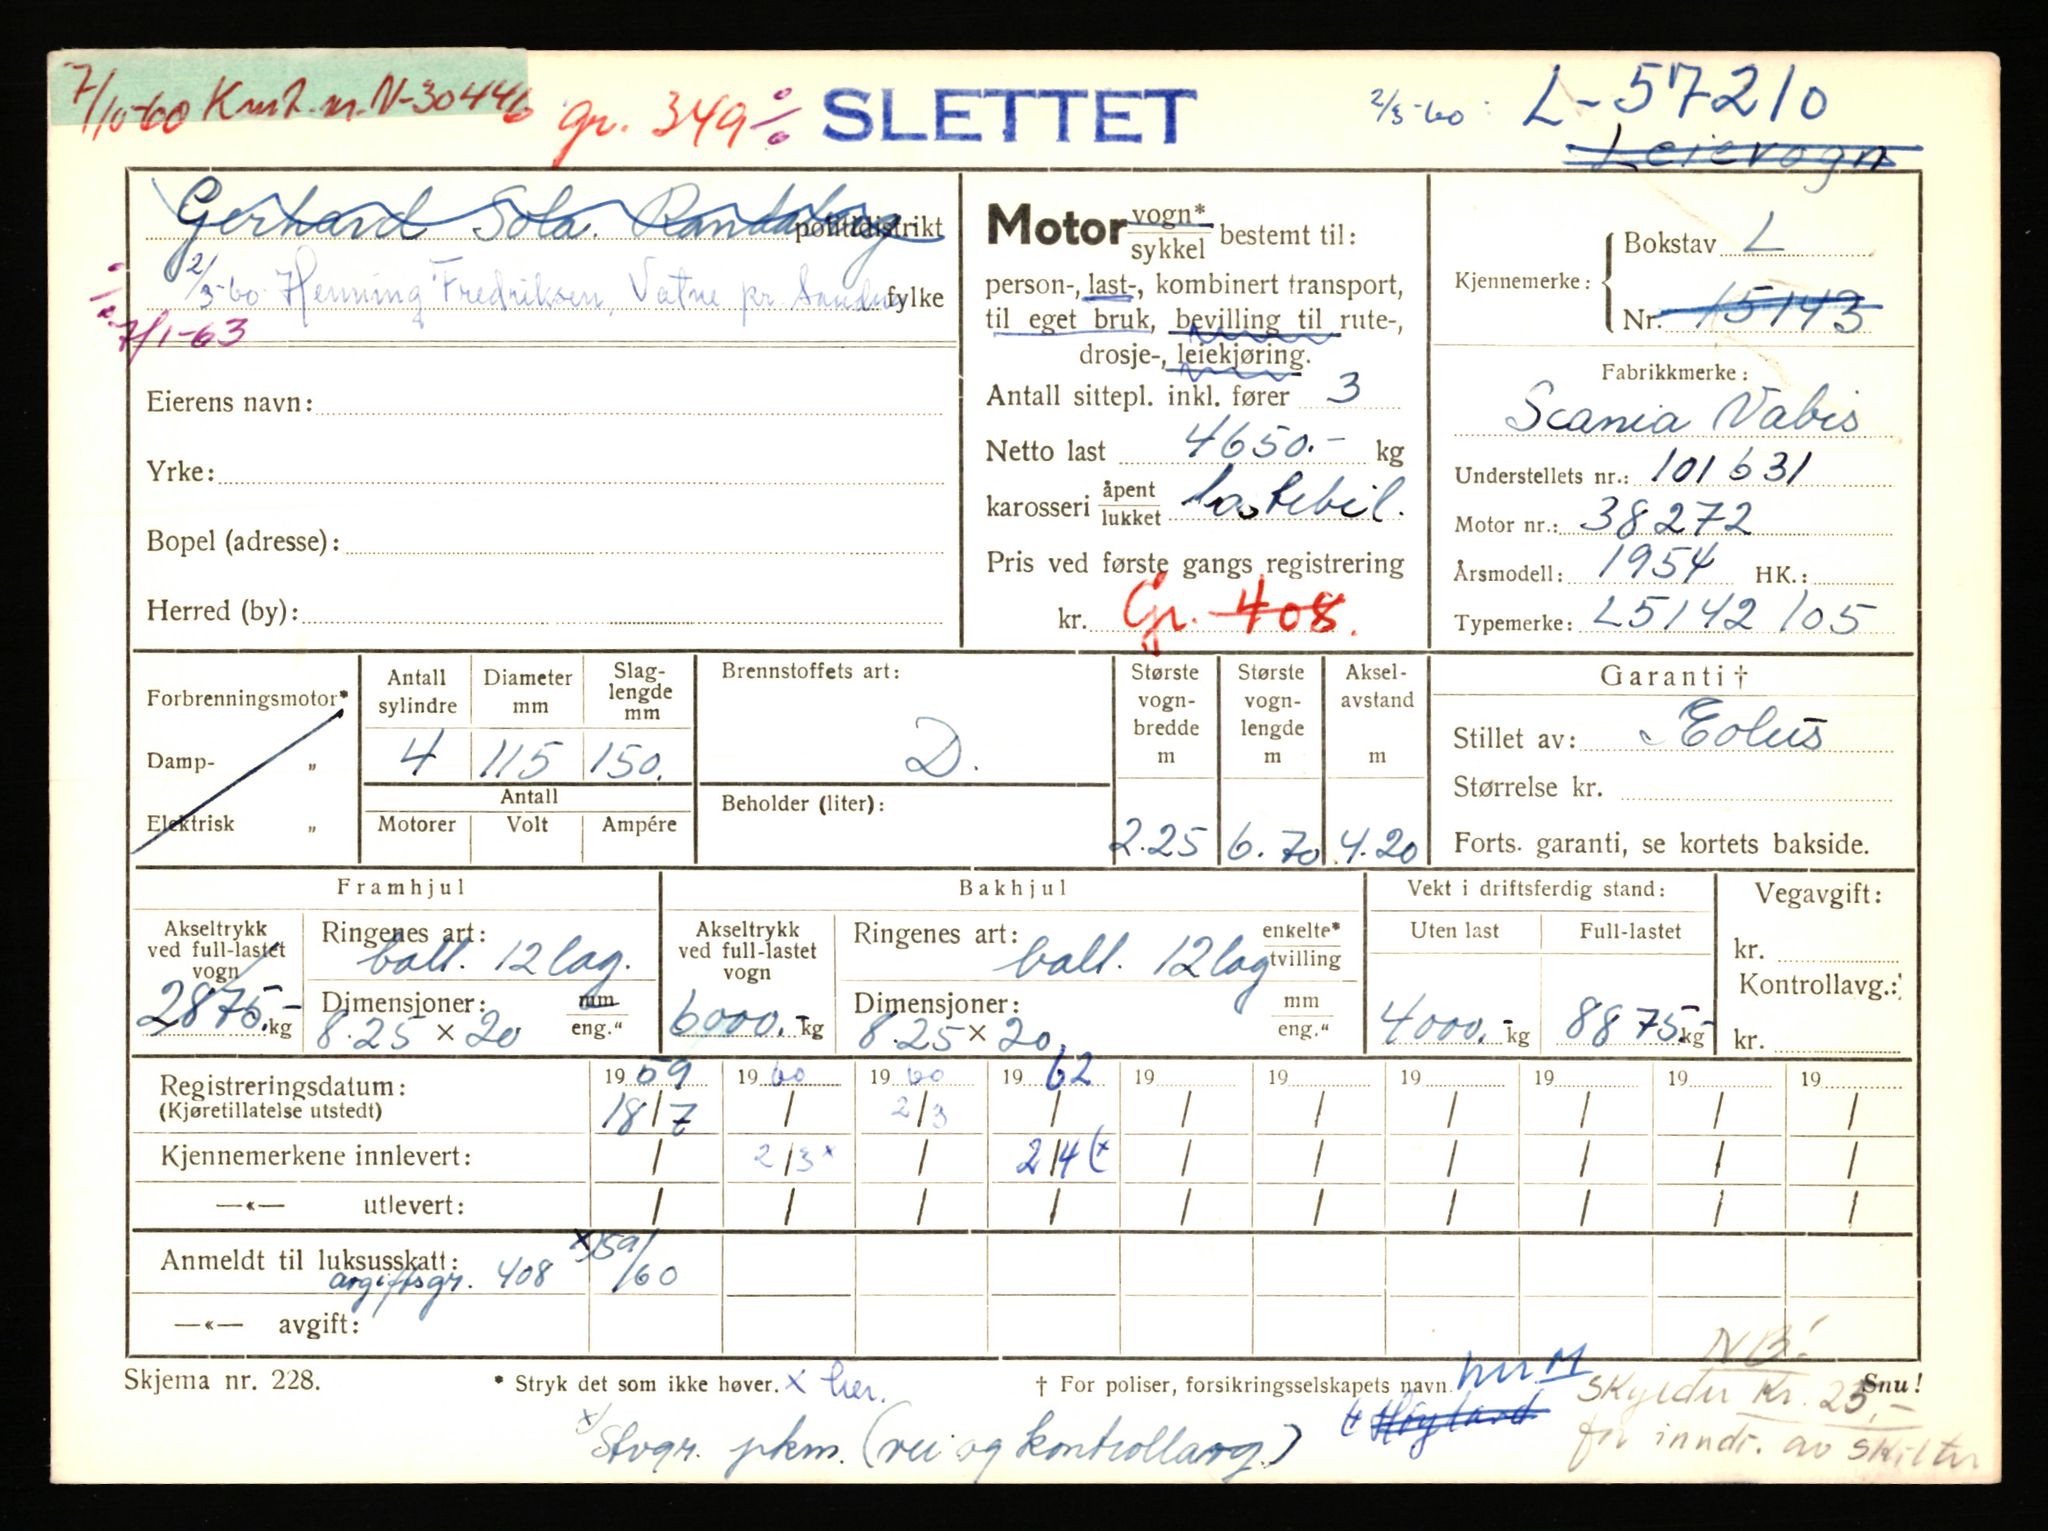 7/10-60 Kmt. nr. N-30446 gr. 349 SLETTET 2/3-60: L-57210
Leievogn
Gerhard Sola. Randaberg politidistrikt
2/3-60 Henning Fredriksen, Vatne pr. Sandnes fylke
7/1-63
Eierens navn:
Yrke:
Bopel (adresse):
Herred (by):
Motor vogn* sykkel bestemt til:
person-, last-, kombinert transport,
til eget bruk, bevilling til rute-,
drosje-, leiekjøring.
Antall sittepl. inkl. fører 3
Netto last 4650.- kg
karosseri åpent lukket lastebil.
Pris ved første gangs registrering
kr. Gr. 408.
Kjennemerke: Bokstav L
Nr. 15143
Fabrikkmerke:
Scania Vabis
Understellets nr.: 101631
Motor nr.: 38272
Årsmodell: 1954 HK.:
Typemerke: L5142105
Forbrenningsmotor*
Damp- „
Elektrisk „
Antall sylindre Diameter mm Slaglengde mm
4 115 150.
Antall
Motorer Volt Ampére
Brennstoffets art:
D.
Beholder (liter):
Største vogn- bredde m Største vogn- lengde m Aksel- avstand m
2.25 6.70 4.20
Garanti †
Stillet av: Eolus
Størrelse kr.
Forts. garanti, se kortets bakside.
Framhjul
Akseltrykk ved full-lastet vogn
2875.- kg
Ringenes art: ball. 12 lag.
Dimensjoner: mm eng."
8.25 × 20
Bakhjul
Akseltrykk ved full-lastet vogn
6000.- kg
Ringenes art: ball. 12 lag enkelte* tvilling
Dimensjoner: mm eng."
8.25 × 20.
Vekt i driftsferdig stand:
Uten last Full-lastet
4000.- kg 8875.- kg
Vegavgift:
kr.
Kontrollavg.:
kr.
Registreringsdatum: 19 59 19 60 19 60 19 62 19 19 19 19 19 19
(Kjøretillatelse utstedt) 18/7 / 2/3 / / / / / / /
Kjennemerkene innlevert: / 2/3 x / 2/4 (x / / / / / /
—«— utlevert: / / / / / / / / / /
Anmeldt til luksusskatt: x) 59/60
avgiftsgr. 408
—«— avgift:
Skjema nr. 228. * Stryk det som ikke høver. x her. † For poliser, forsikringsselskapets navn. Snu!
x/ Stvgr. pkm. (vei og kontrollavg.)
Høyland
NB!
skylder kr. 25,-
for inndr. av skilter